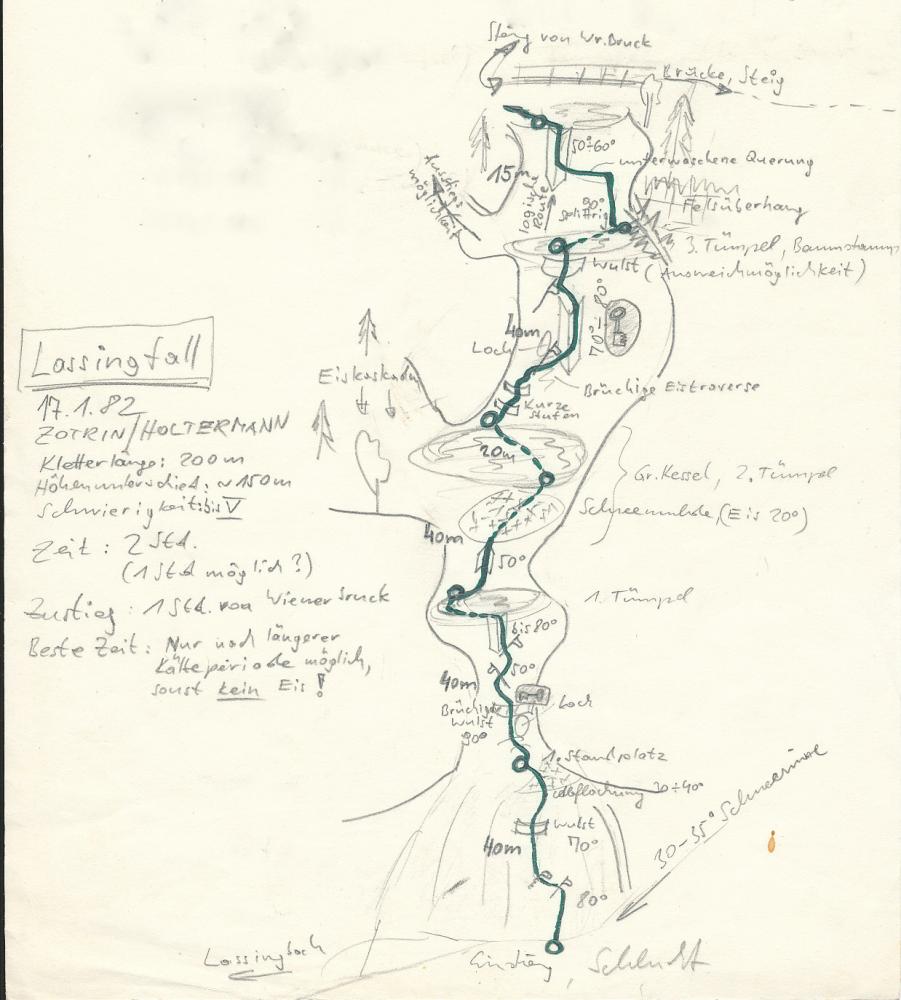 Stieg von Wr. Bruck
Brücke, Steig
50÷60°
unterwaschene Querung
15m
Ausstiegs
möglichkeit
logische
Route
90°
splittrig
Felsüberhang
3. Tümpel, Baumstamm
Wulst (Ausweichmöglichkeit)
40m
70°-80°
Loch
Brüchige Eistraverse
Kurze
stufen
Eiskaskaden
20m
Gr. Kessel, 2. Tümpel
Schneemulde, (Eis 20°)
40m
50°
1. Tümpel
bis 80°
50°
40m
Loch
Brüchiger
Wulst
90°
1. Standplatz
Abflachung 30÷40°
Wulst
70°
40m
80°
30-35° Schneerinne
Lassingbach
Einstieg, Schlucht
Lassingfall
17.1.82
ZOTRIN/HOLTERMANN
Kletterlänge: 200m
Höhenunterschied: ~150m
Schwierigkeit: bis V
Zeit: 2 Std.
(1 Std möglich?)
Zustieg: 1 Std. von Wienerbruck
Beste Zeit: Nur nach längerer
Kälteperiode möglich,
sonst kein Eis!